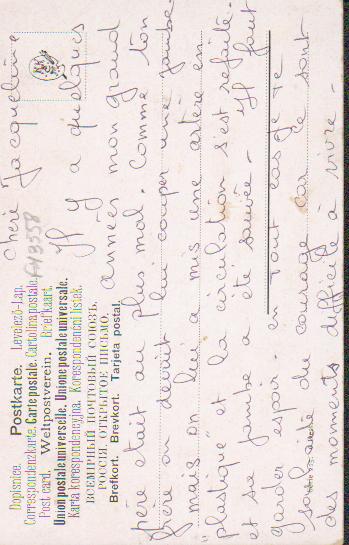 Dopisnice. Postkarte. Levelező-Lap.
Correspondenzkarte. Carte postale. Cartolina postale.
Post card. Weltpostverein. Briefkaart.
Union postale universelle. Unione postale universale.
Karta korespondencyjna. Korespondenční lístek.
ВСЕМІРНЫЙ ПОЧТОВЫЙ СОЮЗЪ.
РОССІЯ. ОТКРЫТОЕ ПИСЬМО.
Brefkort. Brevkort. Tarjeta postal.
FY3558
Chère Jacqueline
Il y a quelques
années mon grand
père était au plus mal. Comme ton
père on devait lui couper une jambe
mais on lui a mis une artère en
"plastique" et la circulation s'est refaite.
et sa jambe a été sauvée - Il faut
garder espoir. en tout cas je te
souhaite du courage car ce sont
des moments difficile à vivre -